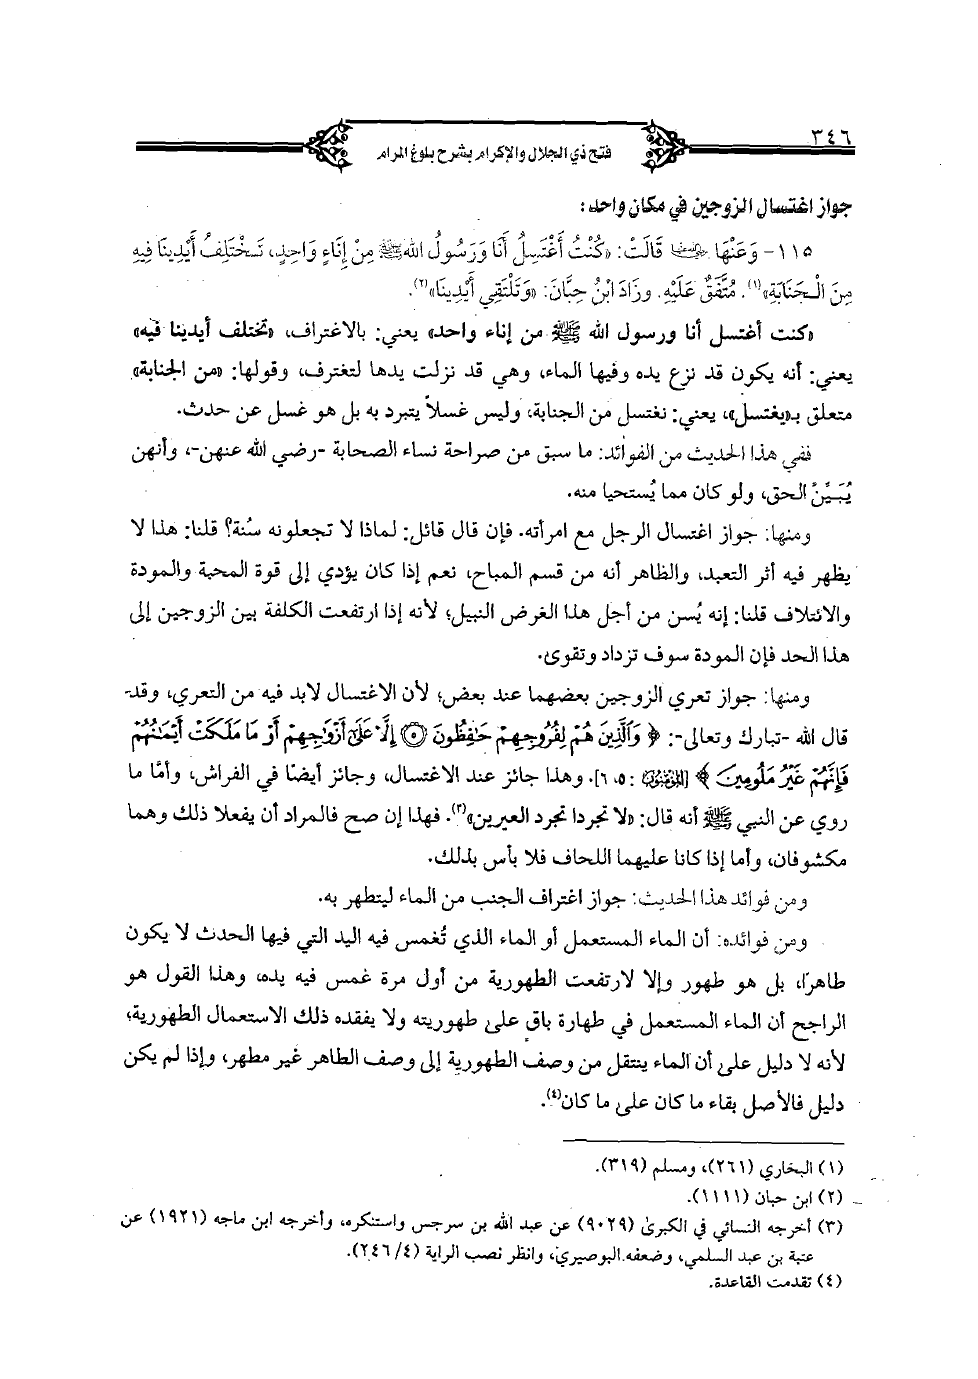 ٣٤٦
فتح ذي الجلال والإكرام بشرح بلوغ المرام
جواز اغتسال الزوجين في مكان واحد:
١١٥- وَعَنْهَا رضي الله عنها قَالَتْ: «كُنْتُ أَغْتَسِلُ أَنَا وَرَسُولُ اللهِ ﷺ مِنْ إِنَاءٍ وَاحِدٍ، تَخْتَلِفُ أَيْدِينَا فِيهِ
مِنَ الْجَنَابَةِ»(١). مُتَّفَقٌ عَلَيْهِ. وزَادَ ابْنُ حِبَّانَ: «وَتَلْتَقِي أَيْدِينَا»(٢).
«كنت أغتسل أنا ورسول الله ﷺ من إناء واحد» يعني: بالاغتراف، «تختلف أيدينا فيه»
يعني: أنه يكون قد نزع يده وفيها الماء، وهي قد نزلت يدها لتغترف، وقولها: «من الجنابة»
متعلق بـ«يغتسل»، يعني: نغتسل من الجنابة، وليس غسلاً يتبرد به بل هو غسل عن حدث.
ففي هذا الحديث من الفوائد: ما سبق من صراحة نساء الصحابة -رضي الله عنهن-، وأنهن
يُبَيِّنَّ الحق، ولو كان مما يُستحيا منه.
ومنها: جواز اغتسال الرجل مع امرأته. فإن قال قائل: لماذا لا تجعلونه سُنة؟ قلنا: هذا لا
يظهر فيه أثر التعبد، والظاهر أنه من قسم المباح، نعم إذا كان يؤدي إلى قوة المحبة والمودة
والائتلاف قلنا: إنه يُسن من أجل هذا الغرض النبيل؛ لأنه إذا ارتفعت الكلفة بين الزوجين إلى
هذا الحد فإن المودة سوف تزداد وتقوى.
ومنها: جواز تعري الزوجين بعضهما عند بعض؛ لأن الاغتسال لابد فيه من التعري، وقد
قال الله -تبارك وتعالى-: ﴿وَٱلَّذِينَ هُمْ لِفُرُوجِهِمْ حَٰفِظُونَ ۝٥ إِلَّا عَلَىٰٓ أَزْوَٰجِهِمْ أَوْ مَا مَلَكَتْ أَيْمَٰنُهُمْ
فَإِنَّهُمْ غَيْرُ مَلُومِينَ﴾ [المؤمنون: ٥، ٦]. وهذا جائز عند الاغتسال، وجائز أيضًا في الفراش، وأمَّا ما
روي عن النبي ﷺ أنه قال: «لا تجردا تجرد العيرين»(٣). فهذا إن صح فالمراد أن يفعلا ذلك وهما
مكشوفان، وأما إذا كانا عليهما اللحاف فلا بأس بذلك.
ومن فوائد هذا الحديث: جواز اغتراف الجنب من الماء ليتطهر به.
ومن فوائده: أن الماء المستعمل أو الماء الذي تُغمس فيه اليد التي فيها الحدث لا يكون
طاهرًا، بل هو طهور وإلا لارتفعت الطهورية من أول مرة غمس فيه يده، وهذا القول هو
الراجح أن الماء المستعمل في طهارة باقٍ على طهوريته ولا يفقده ذلك الاستعمال الطهورية؛
لأنه لا دليل على أن الماء ينتقل من وصف الطهورية إلى وصف الطاهر غير مطهر، وإذا لم يكن
دليل فالأصل بقاء ما كان على ما كان(٤).
(١) البخاري (٢٦١)، ومسلم (٣١٩).
(٢) ابن حبان (١١١١).
(٣) أخرجه النسائي في الكبرى (٩٠٢٩) عن عبد الله بن سرجس واستنكره، وأخرجه ابن ماجه (١٩٢١) عن
عتبة بن عبد السلمي، وضعفه البوصيري، وانظر نصب الراية (٤/ ٢٤٦).
(٤) تقدمت القاعدة.